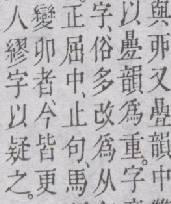 與丣又疊韻中
以疊韻爲重。字
字俗多改爲从
正屈中、止句、馬
變卯者今皆更
人繆字以疑之。